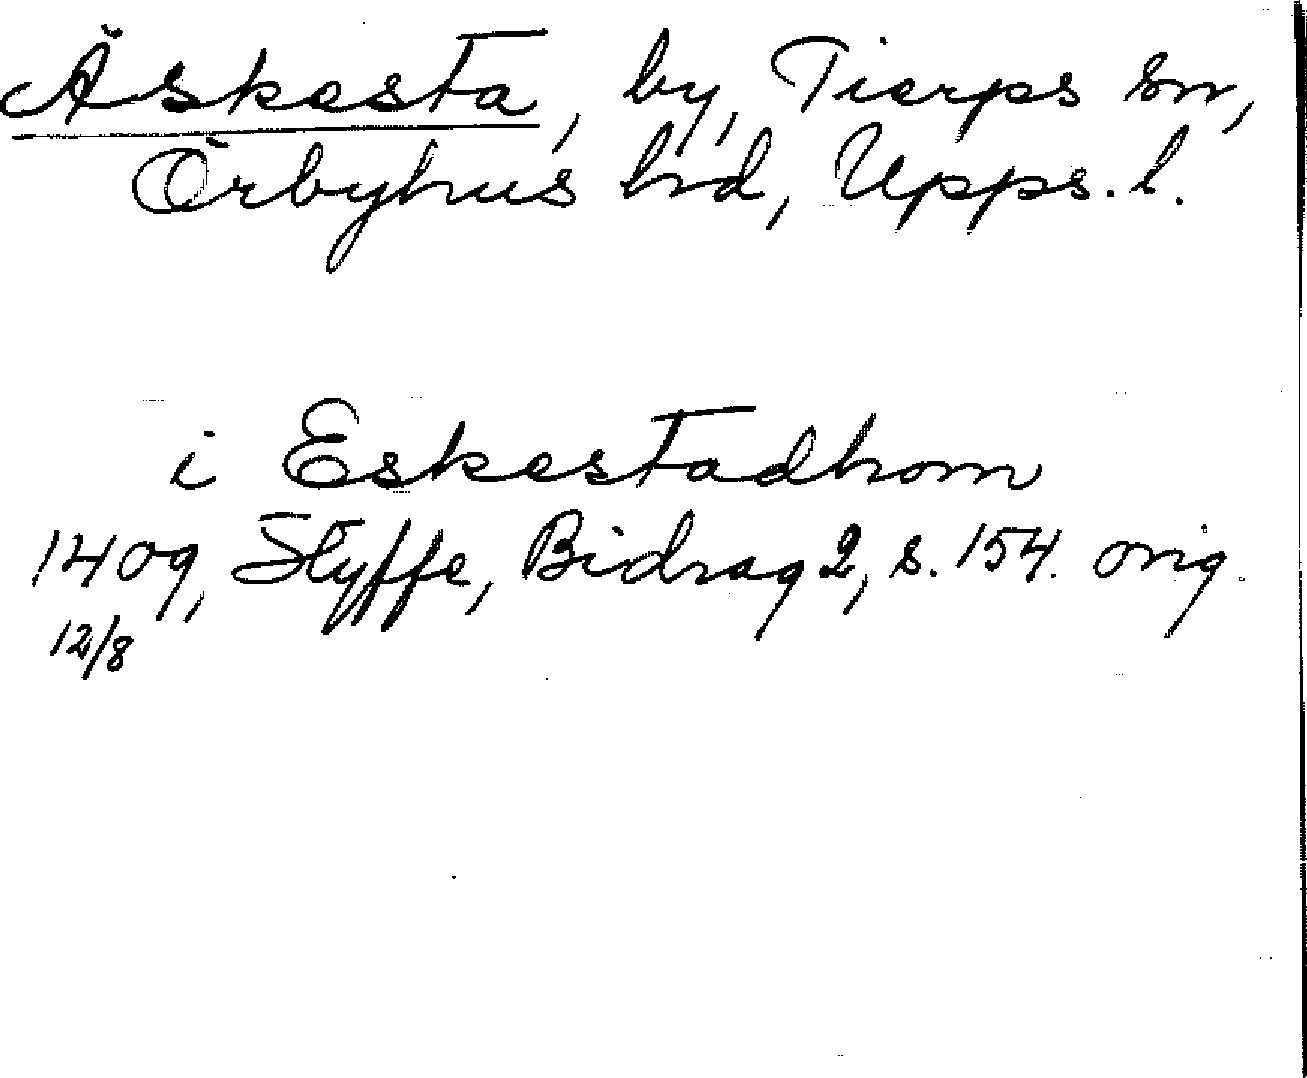 Äskesta, by, Tierps sn,
Örbyhus hrd, Upps. l.
i Eskestadhom
1409, Styffe, Bidrag 2, s. 154. orig.
12/8